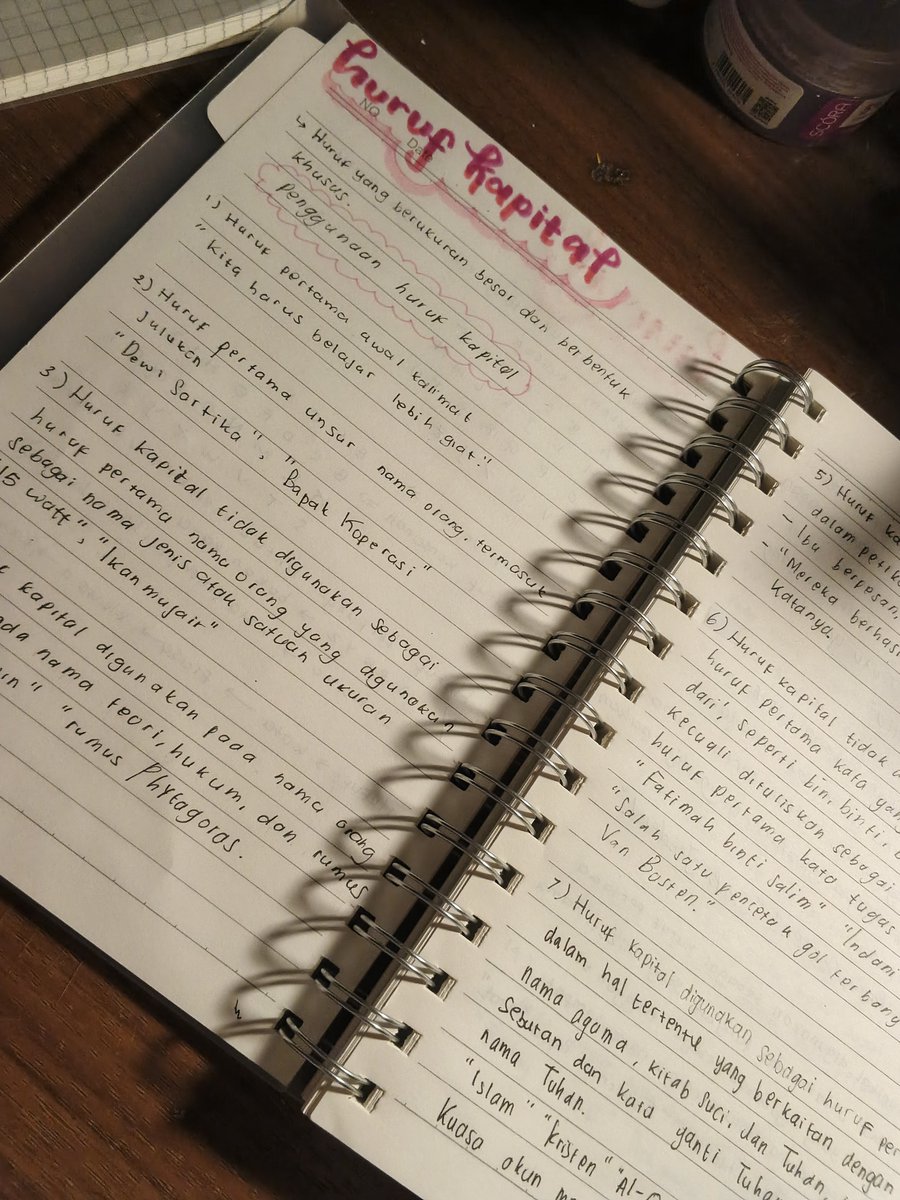 huruf kapital
NO
Date
↳ Huruf yang berukuran besar dan berbentuk
khusus.
penggunaan huruf kapital
1) Huruf pertama awal kalimat
"Kita harus belajar lebih giat."
2) Huruf pertama unsur nama orang, termasuk
julukan
"Dewi Sartika", "Bapak Koperasi"
3) Huruf kapital tidak digunakan sebagai
huruf pertama nama orang yang digunakan
sebagai nama jenis atau satuan ukuran
15 watt", "Ikan mujair"
kapital digunakan pada nama orang
nama teori, hukum, dan rumus
"rumus Phytagoras.
5) Huruf
dalam
- Ibu berpesan,
- "Mereka
Katanya.
6) Huruf kapital tidak
huruf pertama kata
dari', seperti bin, binti,
kecuali dituliskan sebagai
huruf pertama kata tugas
"Fatimah binti salim" "Indani
"Salah satu pencetak gol
Van Basten."
7) Huruf kapital digunakan sebagai huruf
dalam hal tertentu yang berkaitan dengan
nama agama, kitab suci, dan Tuhan
Sebutan dan kata ganti
nama Tuhan.
"Islam" "Kristen"
Kuasa akan
SCÓRA